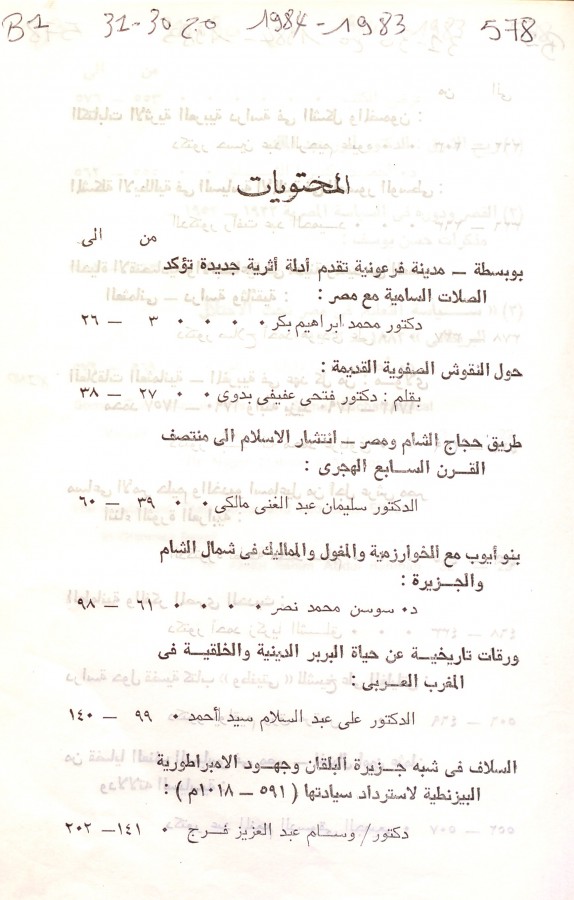 578 1983-1984 ج٥ 30-31 B1
المحتويات
من الى
بوبسطة — مدينة فرعونية تقدم أدلة أثرية جديدة تؤكد
الصلات السامية مع مصر :
دكتور محمد ابراهيم بكر ٠ ٠ ٠ ٠ ٣ — ٢٦
حول النقوش الصفوية القديمة :
بقلم : دكتور فتحى عفيفى بدوى ٠ ٠ ٢٧ — ٣٨
طريق حجاج الشام ومصر — انتشار الاسلام الى منتصف
القرن السـابع الهجرى :
الدكتور سليمان عبد الغنى مالكى ٠ ٠ ٣٩ — ٦٠
بنو أيوب مع الخوارزمية والمغول والماليك فى شمال الشام
والجـزيرة :
د٠ سوسن محمد نصر ٠ ٠ ٠ ٠ ٦١ — ٩٨
ورقات تاريخيـة عن حياة البربر الدينية والخلقيـة فى
المغرب العـربى :
الدكتور على عبد السلام سيد أحمد ٠ ٩٩ — ١٤٠
السلاف فى شبه جـزيرة البلقان وجهـود الامبراطورية
البيزنطية لاسترداد سيادتها ( ٥٩١ — ١٠١٨م ) :
دكتور/ وسـام عبد العزيز فـرج ٠ ١٤١ — ٢٠٢